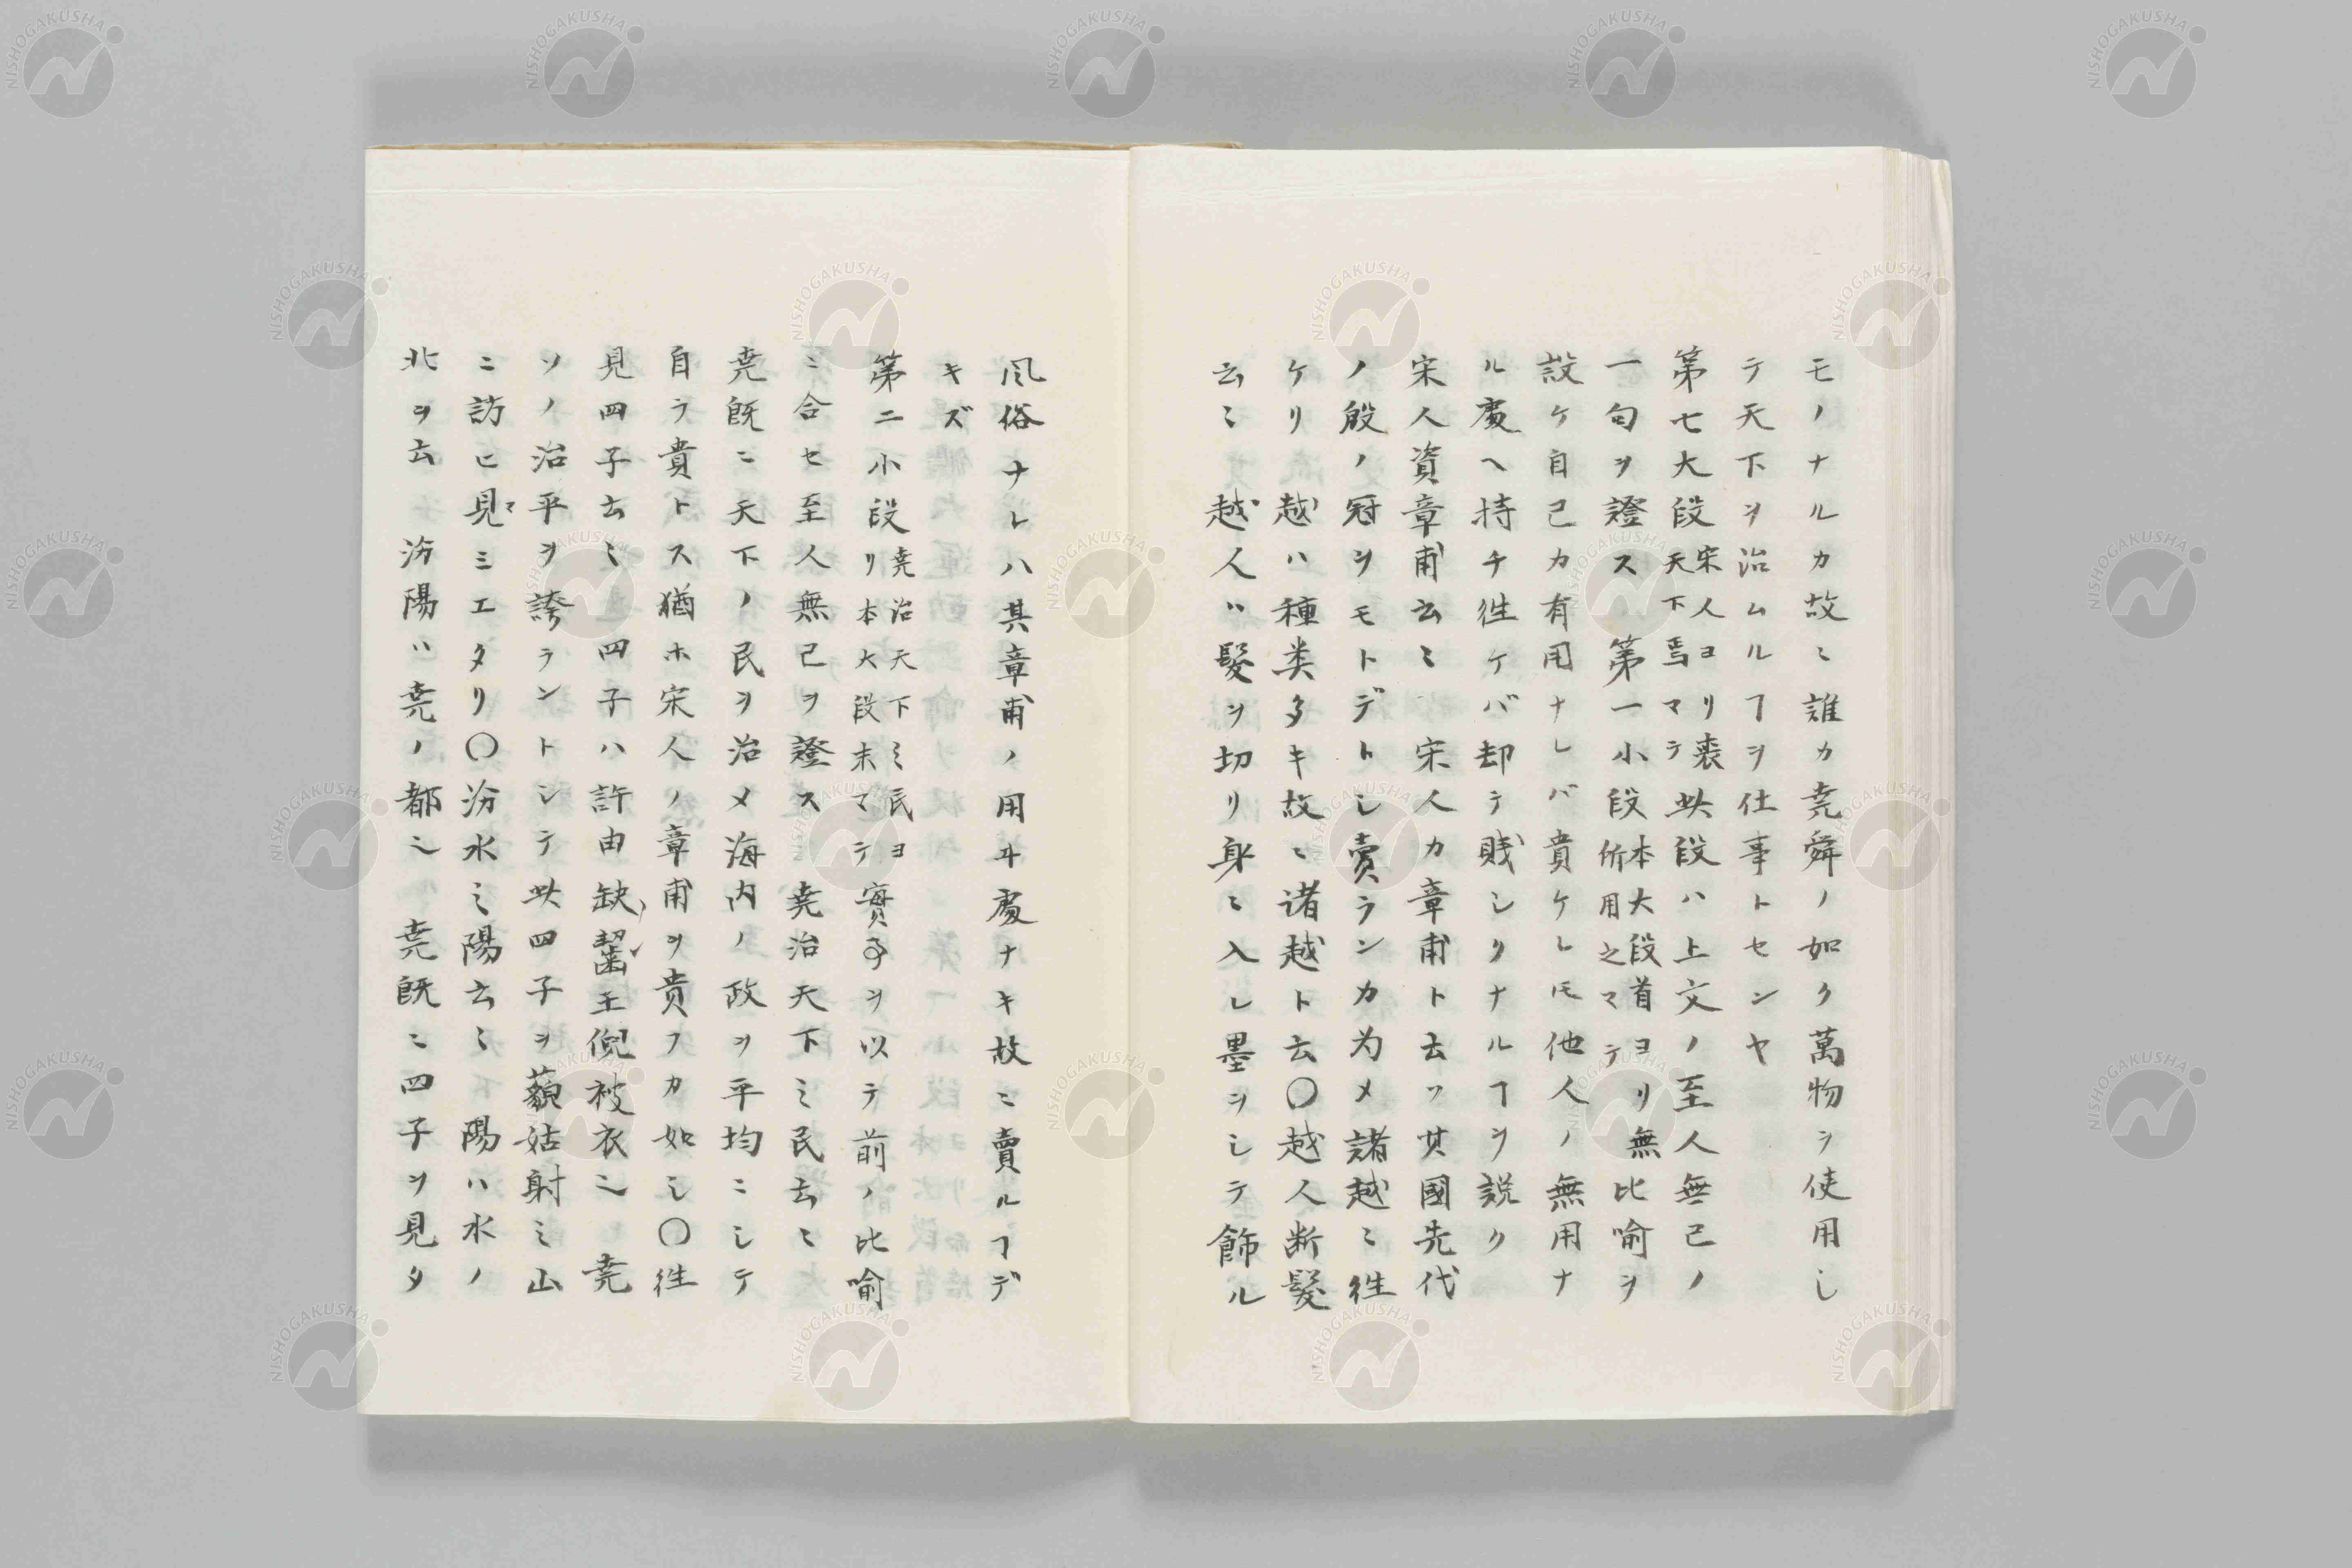 モノナルカ故ニ誰カ堯舜ノ如ク萬物ヲ使用し
テ天下ヲ治ムルヿヲ仕事トセンヤ
第七大段宋人ヨリ喪天下焉マテ此段ハ上文ノ至人無己ノ
一句ヲ證ス 第一小段本大段首ヨリ無所用之マテ比喻ヲ
設ケ自己カ有用ナレバ貴ケレ𪜈他人ノ無用ナ
ル處ヘ持チ徃ケバ却テ賎シクナルヿヲ説ク
宋人資章甫云〻 宋人カ章甫ト云ッ其國先代
ノ殷ノ冠ヲモトデトし賣ランカ为メ諸越ニ徃
ケリ越ハ種类多キ故ニ诸越ト云〇越人断髪
云〻 越人ハ髪ヲ切リ身ニ入レ墨ヲシテ飾ル
風俗ナレハ其章甫ノ用ヰ處ナキ故ニ賣ルヿデ
キズ
第二小段堯治天下之民ヨリ本大段末マテ實事ヲ以テ前ノ比喻
ニ合セ至人無己ヲ證ス 堯治天下之民云〻
堯既ニ天下ノ民ヲ治メ海内ノ政ヲ平均ニシテ
自ラ貴トス猶ホ宋人ノ章甫ヲ貴フカ如し〇徃
見四子云〻 四子ハ許由缺齧王倪被衣也 堯
ソノ治平ヲ誇ラントシテ此四子ヲ藐姑射之山
ニ訪ヒ見マミエタリ〇汾水之陽云〻 陽ハ水ノ
北ヲ云 汾陽ハ堯ノ都也 堯既ニ四子ヲ見タ
NISHOGAKUSHA